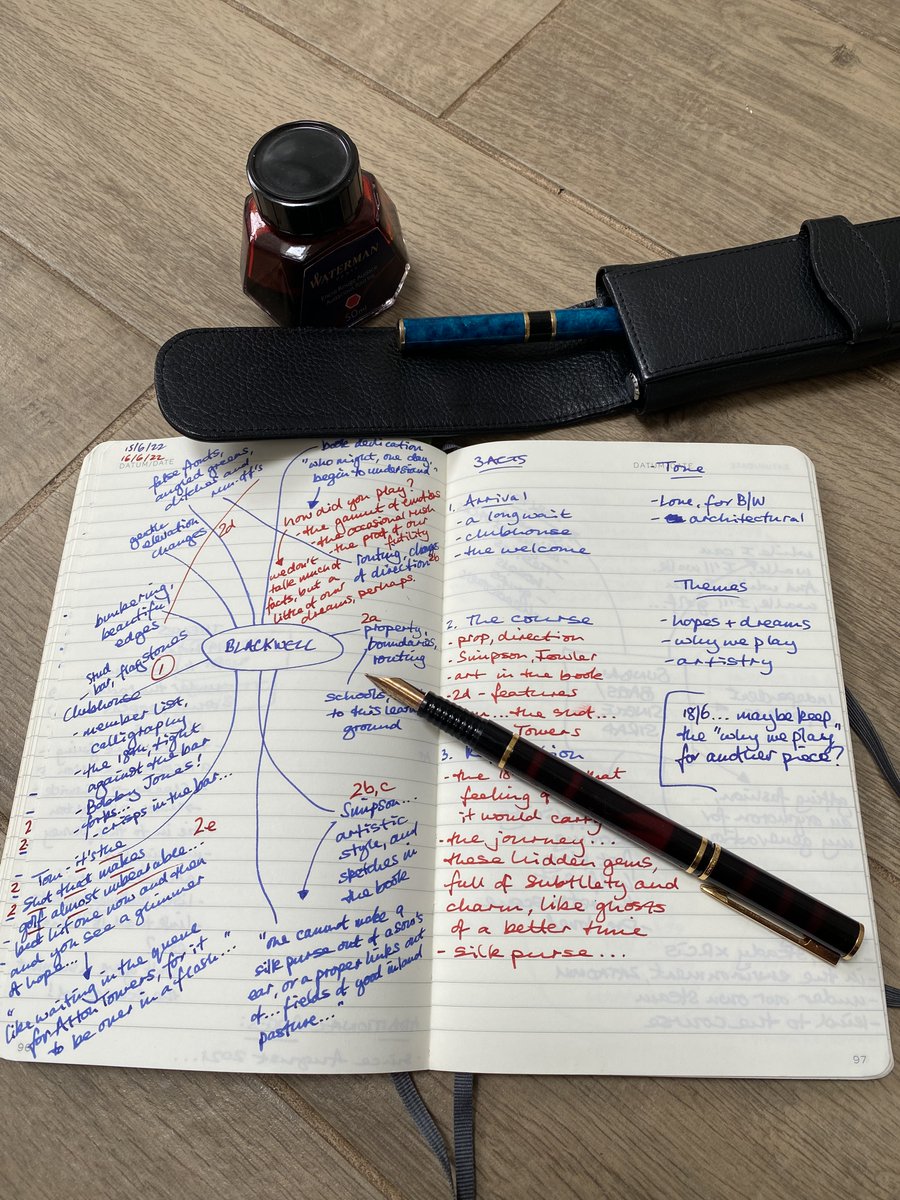 WATERMAN
15/6/22
16/6/22
DATUM/DATE
false fronts,
angled greens,
ditches and
run-offs
gentle
elevation
changes
2d
- bunkering,
beautiful
edges
book dedication
"who might, one day,
begin to understand"
how did you play?
- the gamut of emotions
- the occasional rush
- the proof of our
futility
we don't
talk much of
facts, but a
little of our
dreams, perhaps.
routing, change
of direction 2b
BLACKWELL
2a
property,
boundaries,
routing
schools,
to this
ground
stud
- bar, flagstones
1
clubhouse
- member list,
calligraphy
- the 18th, tight
against the bar
- Bobby Jones!
- forks...
- crisps in the bar...
2
2
2e
2 Tom - it's the
2 shot that makes
golf almost unbearable...
- but list one now and then
and you see a glimmer
of hope...
"like waiting in the queue
for Alton Towers, for it
to be over in a flash..."
2b,c
Simpson...
artistic
style, and
sketches in
the book
"one cannot make a
silk purse out of a sow's
ear, or a proper links out
of... fields of good inland
pasture..."
96
3 ACTS
1. Arrival
- a long wait
- clubhouse
- the welcome
2. The course
- prop, direction
- Simpson, Fowler
- art in the book
- 2d - features
... the shot...
Towers
3.
- the 18
that
feeling
it would carry
- the journey...
these hidden gems,
full of subtlety and
charm, like ghosts
of a better time
- silk purse...
DATUM/DATE
Tone
- Love, for B/W
- architectural
Themes
- hopes + dreams
- why we play
- artistry
18/6... maybe keep
the "why we play"
for another piece?
97